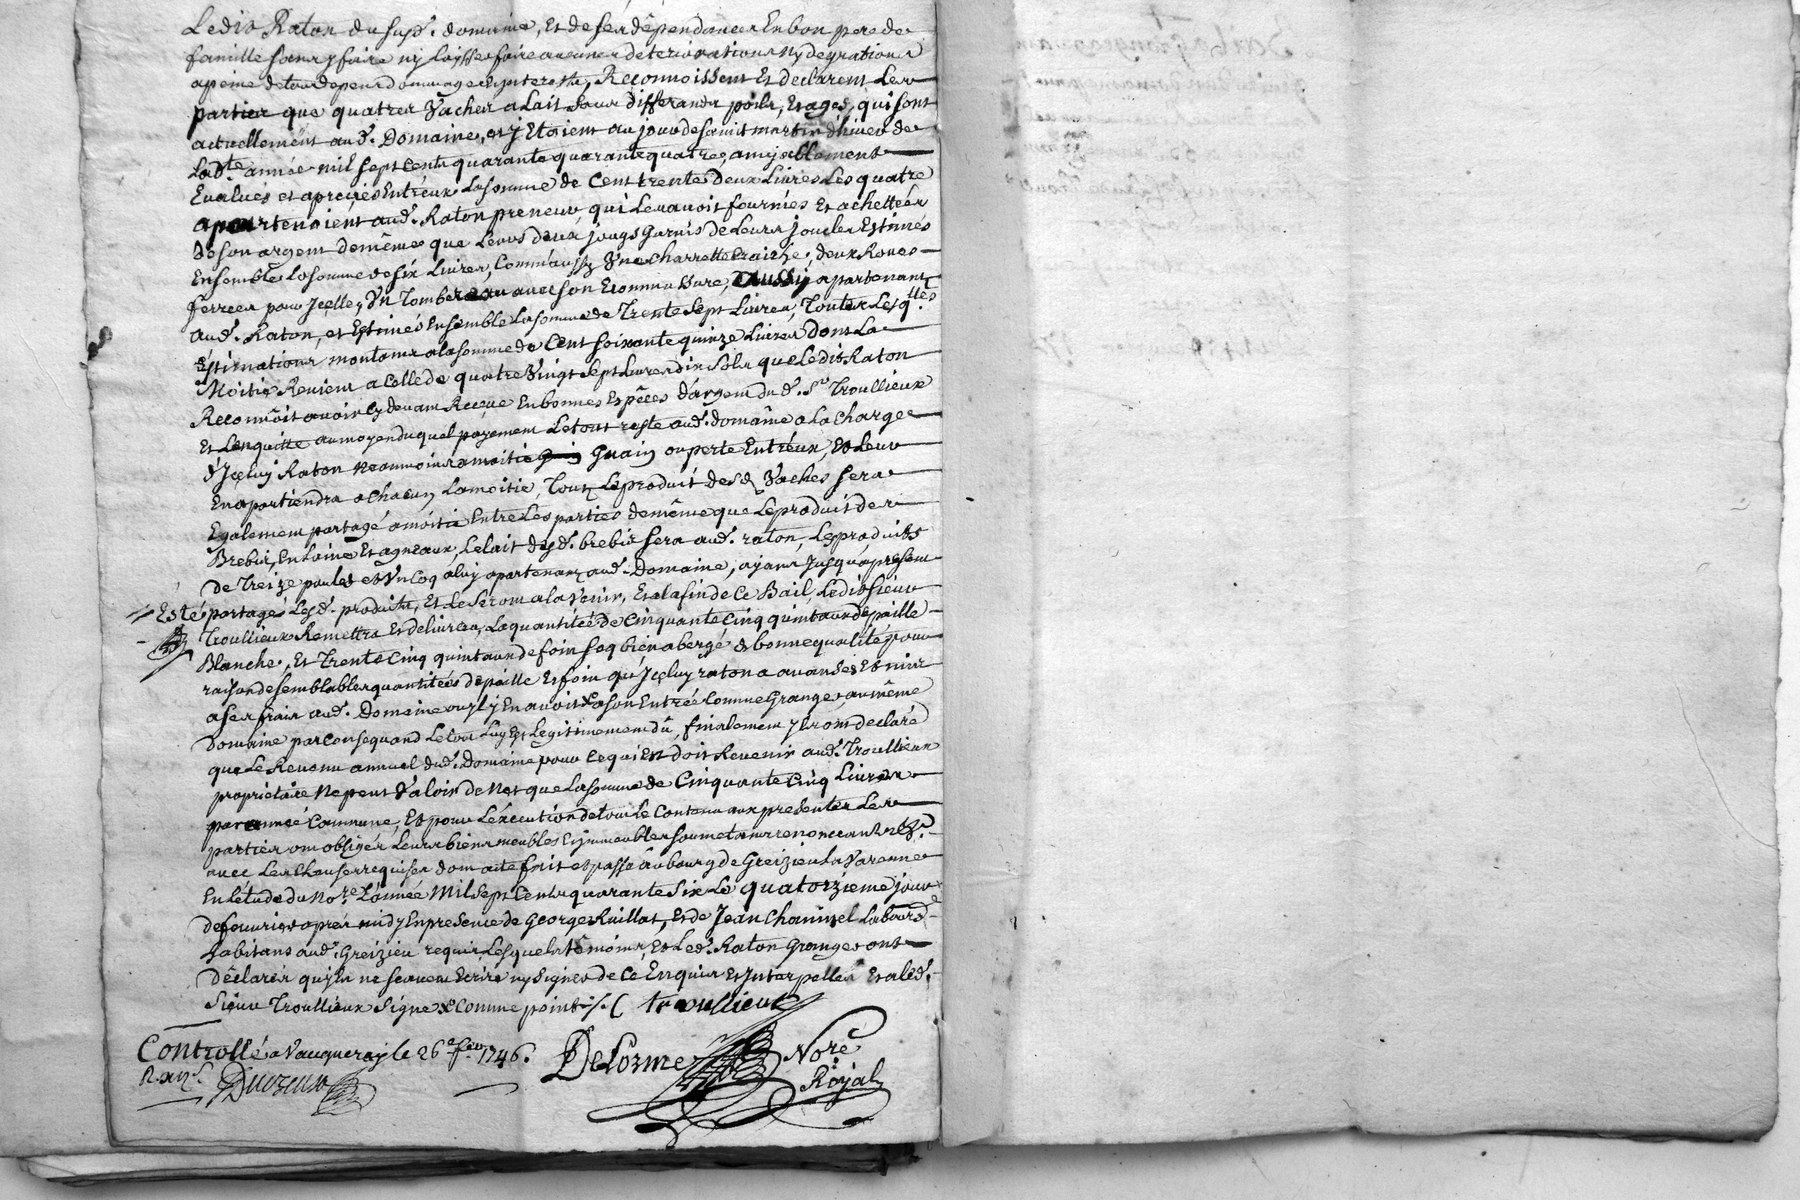 Ledit Raton du susd. domaine, Et de ses dépendances En bon pere de
famille sans y faire ny Laysser faire aucunes déteriorations ny degrations
a peine de tous depens dommages & interests, Reconnoissent Et declarent Les
parties que quatres Vaches a Lait sous differands poils, Et ages, qui sont
actuellement aud. Domaine, et y Etoient au jour de saint martin d'hiver de
Lad.te année mil sept cents quarante quarante quatre, amiablement
Evalués et apreciés Entréux La somme de Cent trente deux Livres Les quatre
apartenoient aud. Raton preneur qui Les avoit fournies Et achettées
de son argent de même que Leurs deux jougs garnis de Leurs joucles Estimés
Ensemble La somme de six Livres, Comm'aussy Vne Charrette deux Roues
ferrées pour Jcelle, Vn Tombereau avec son aussy apartenant
aud. Raton, et Estimés Ensemble La somme de Trente sept Livres, Toutes Lesq.lles
Estimations montants a la somme de Cent soixante quinze Livres dont La
Moitié Revient a Celle de quatre Vingt sept Livres dix sols que Ledit Raton
Reconnoit avoir cy devant Receue En bonnes Espêces d'argent dud. Sr. Troullieux
Et L'en quitte au moyen du quel payement Le tout reste aud. domaine a La Charge
d'Jceluy Raton neanmoins a moitié Guain ou perte Entréux, Et Leur
En apartiendra a Chacun La moitié, Tout Le produit desd. Vaches sera
Egalement partagé a moitié Entre Les parties de même que Le produit des
Brebis, En Laine Et agneaux, Le lait desd. brebis sera aud. raton, Les produits
de Treize poules et Vn Coq a luy apartenant aud. Domaine, ayant Jusqu'apresent
Esté partagés Lesd. produits, Et Le seront a la Venir, Et a la fin de Ce Bail, Ledit sieur
Troullieux Remettra Et delivrera, La quantitée de Cinquante Cinq quintaux de paille
Blanche, Et Trente Cinq quintaux de foin sec bien abergé & bonne qualité pour
raison de semblables quantitées de paille Et foin qu'Jceluy raton a avansés Et
a ses frais aud. Domaine n'y En avoit a son Entrée Comme Granger, au même
Domaine par Consequand Le tout Luy Est Legitimement dû, finalement y Eront declaré
que Le Revenu annuel dud. Domaine pour Ce qui Est doit Revenir aud. Troullieux
propriétaire Ne peut Valoir de Net que La somme de Cinquante Cinq Livres
par année Commune, Et pour L'execution de tout Le Contenu aux presentes Les
parties ont obligés Leurs biens meubles Et jmmeubles soumetants renoncants
avec Les Clauses requises dont acte fait et passé au bourg de Greizieu La Varenne
En L'étude du No.re L'année Mil sept Cents quarante Six Le quatorzieme jour
de fevrier aprés midy En presence de George Ruillat, Et de Jean Chanizel Labour.
habitans aud. Greizieu requis, Lesquels têmoins, Et Led. Raton Granger ont
Déclarés qu'jls ne scavent Ecrire ny signer de Ce Enquis Et Jnterpellés Et a Led.
Sieur Troullieux Signe & comme point
troullieux
Controllé a Vaugneray le 26.e fev. 1746.
DeLorme Nore
Royal